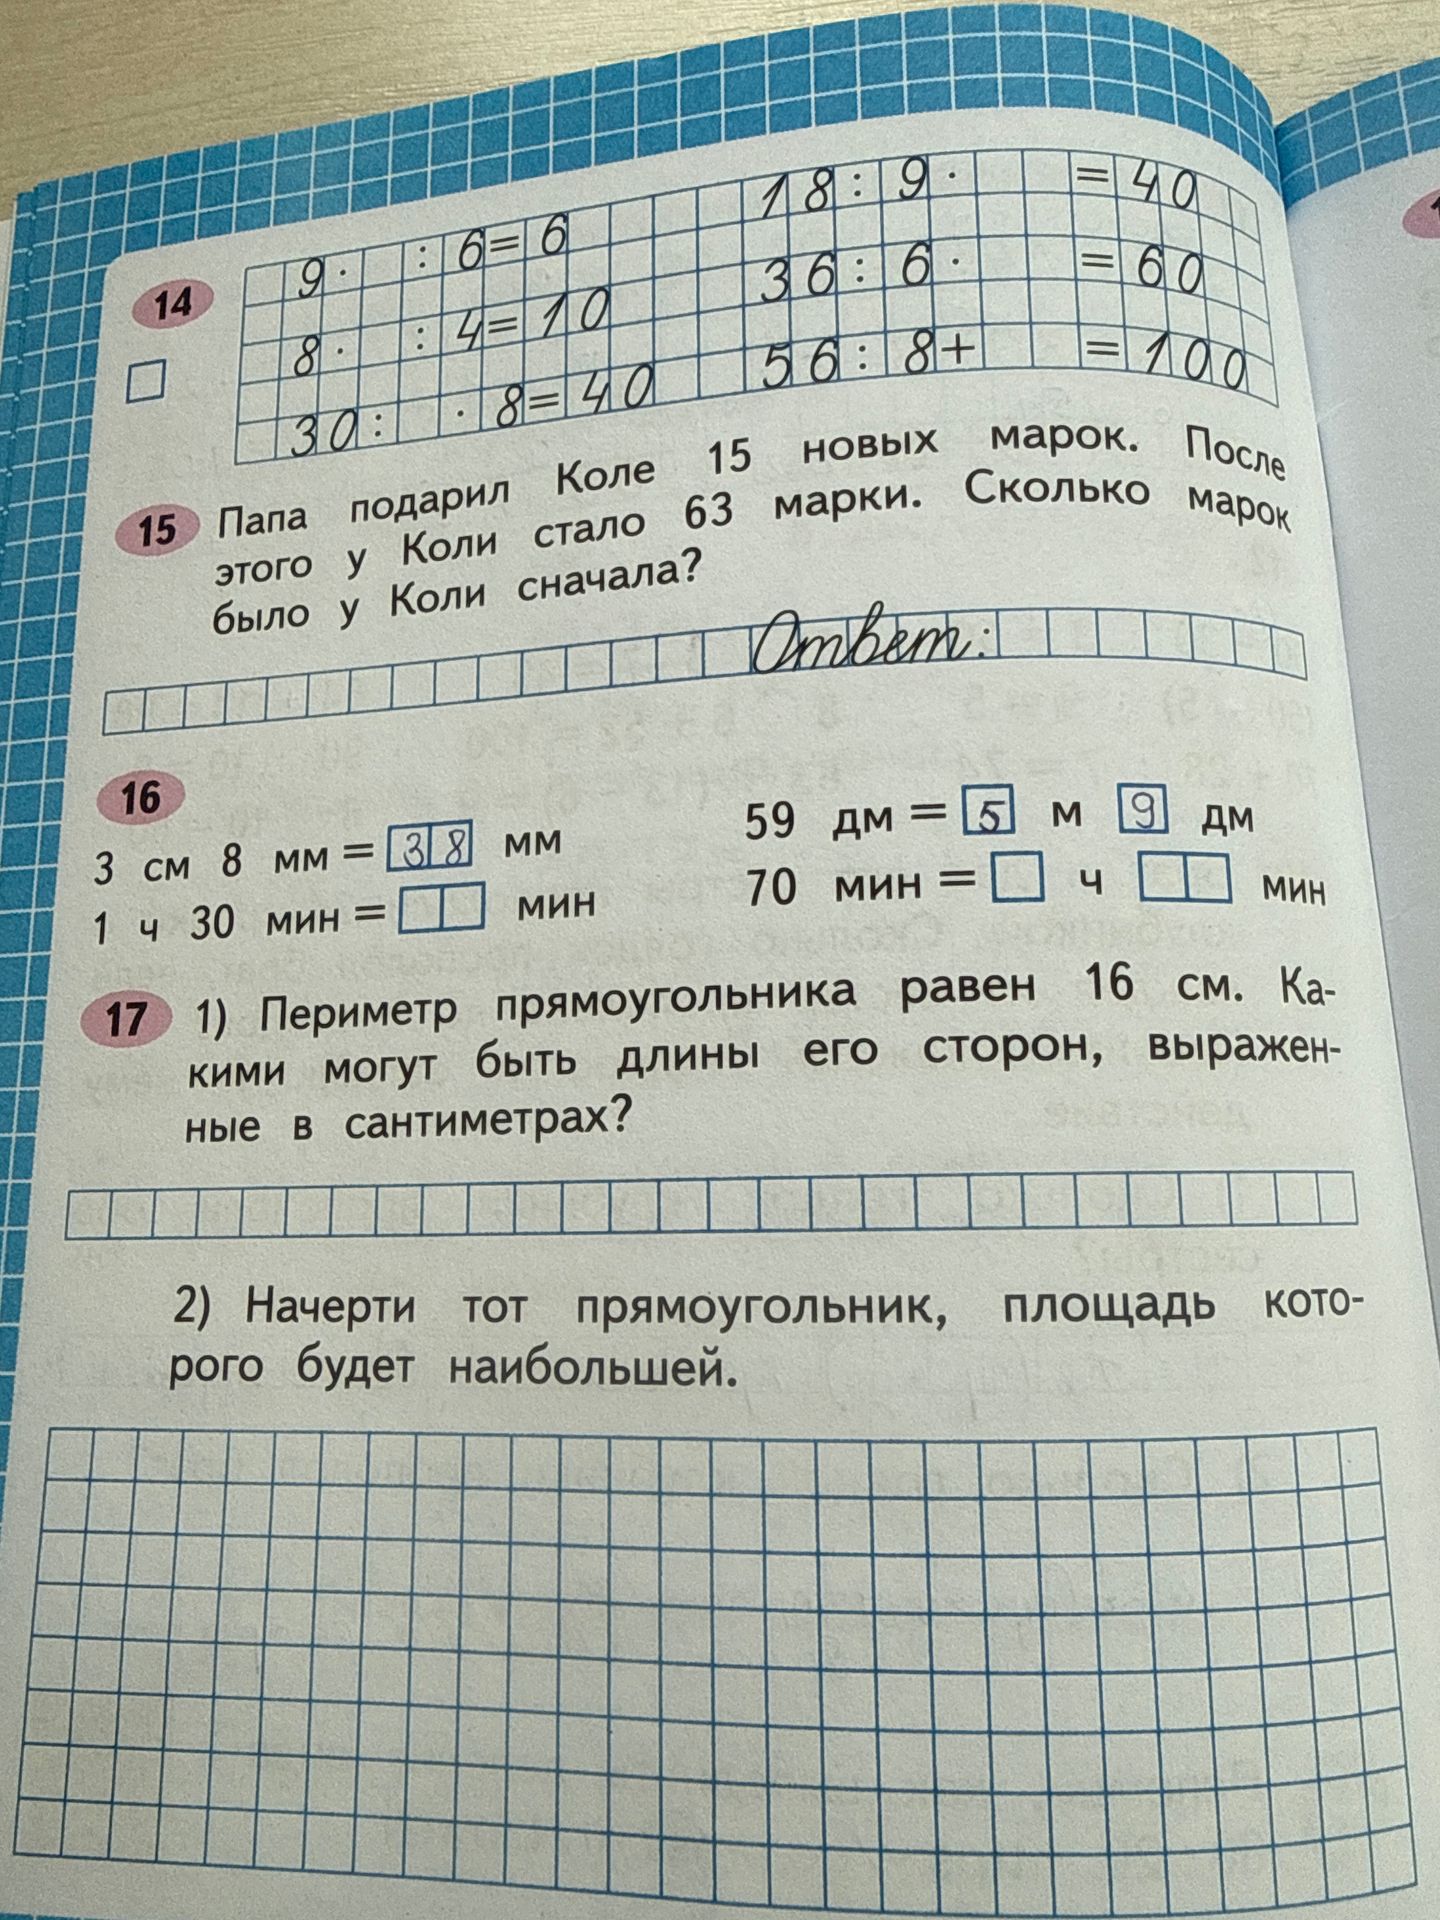 14
9 · : 6 = 6
18 : 9 · = 40
8 · : 4 = 10
36 : 6 · = 60
30 : · 8 = 40
56 : 8 + = 100
15 Папа подарил Коле 15 новых марок. После
этого у Коли стало 63 марки. Сколько марок
было у Коли сначала?
Ответ:
16
3 см 8 мм = 38 мм
59 дм = 5 м 9 дм
1 ч 30 мин = мин
70 мин = ч мин
17 1) Периметр прямоугольника равен 16 см. Ка-
кими могут быть длины его сторон, выражен-
ные в сантиметрах?
2) Начерти тот прямоугольник, площадь кото-
рого будет наибольшей.